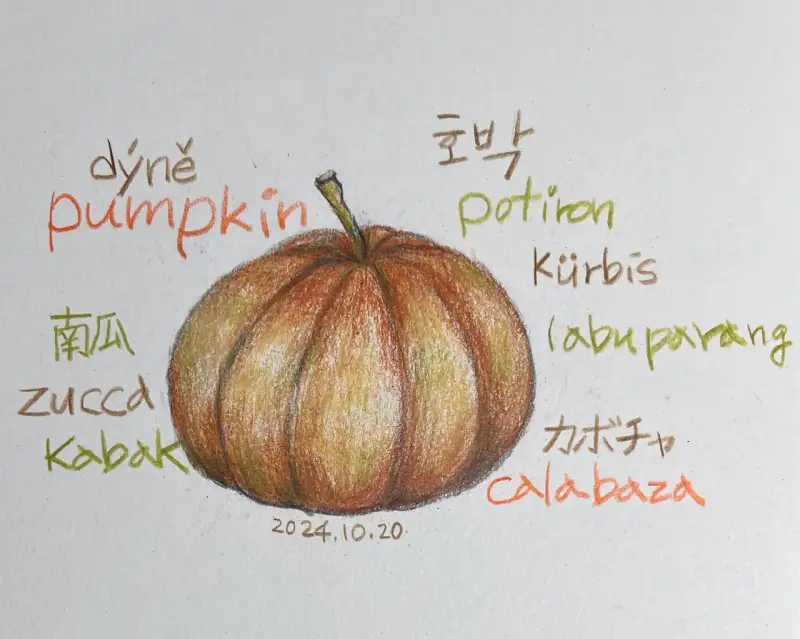 dýně
pumpkin
南瓜
zucca
kabak
호박
potiron
Kürbis
labu parang
カボチャ
calabaza
2024.10.20.